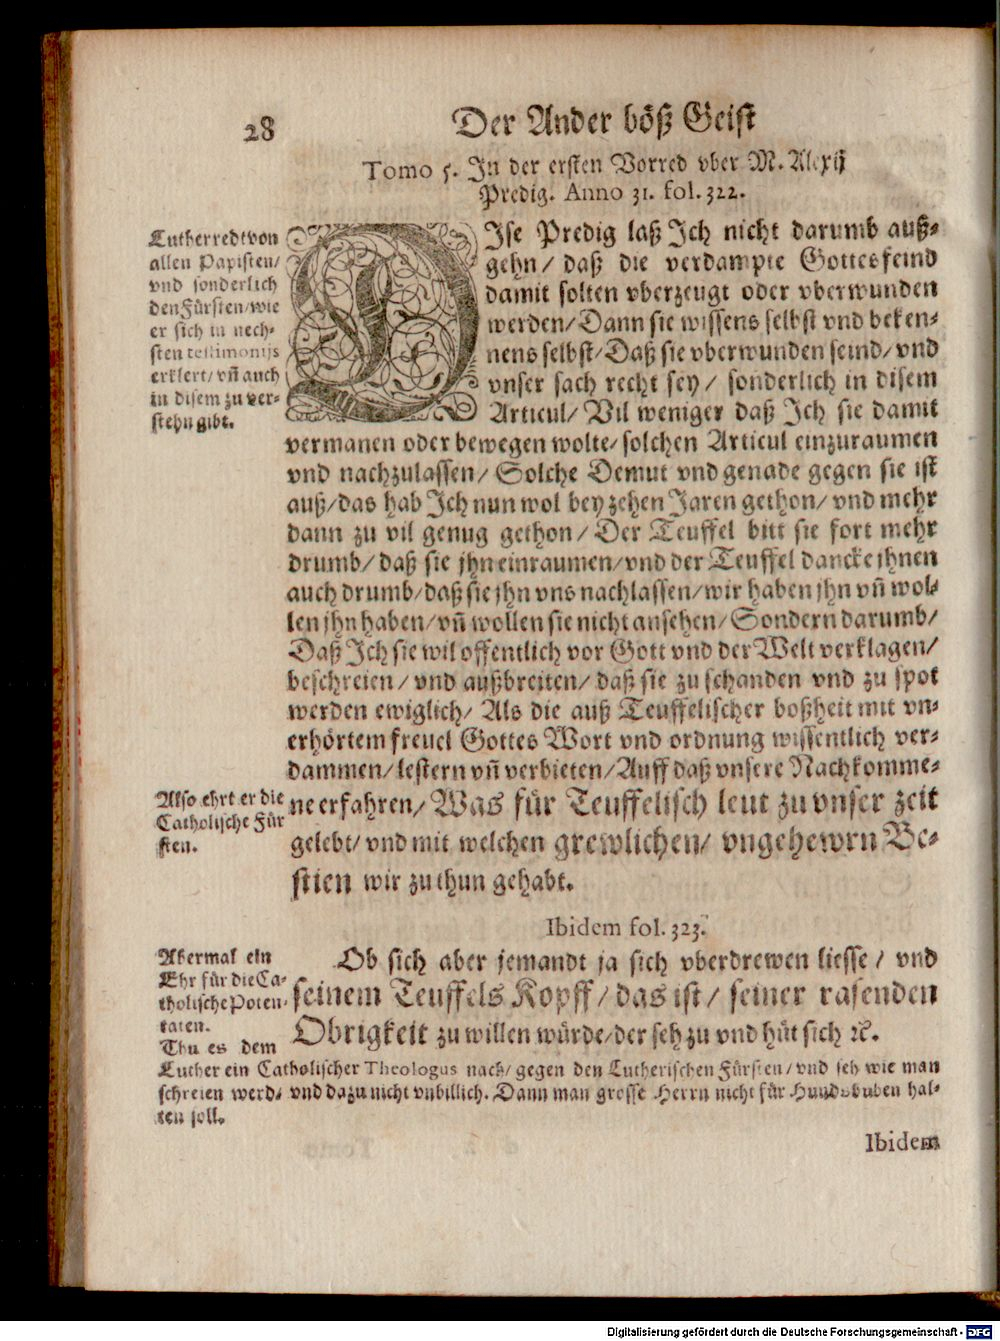 28
Der Ander böß Geist
Tomo 5. In der ersten Vorred vber M. Alexij
Predig. Anno 31. fol. 322.
Luther redt von
allen Papisten/
vnd sonderlich
den Fürsten/wie
er sich in nech-
sten testimonijs
erklert/vñ auch
in disem zu ver-
stehn gibt.
DIse Predig laß Ich nicht darumb auß-
gehn/ daß die verdampte Gottesfeind
damit solten vberzeugt oder vberwunden
werden/Dann sie wissens selbst vnd beken-
nens selbst/Daß sie vberwunden seind/vnd
vnser sach recht sey/ sonderlich in disem
Articul/ Vil weniger daß Ich sie damit
vermanen oder bewegen wolte/solchen Articul einzuraumen
vnd nachzulassen/ Solche Demut vnd genade gegen sie ist
auß/das hab Ich nun wol bey zehen Jaren gethon/vnd mehr
dann zu vil genug gethon/ Der Teuffel bitt sie fort mehr
drumb/daß sie jhn einraumen/vnd der Teuffel dancke jhnen
auch drumb/daß sie jhn vns nachlassen/wir haben jhn vñ wol-
len jhn haben/vñ wollen sie nicht ansehen/Sondern darumb/
Daß Ich sie wil offentlich vor Gott vnd der Welt verklagen/
beschreien/ vnd außbreiten/ daß sie zu schanden vnd zu spot
werden ewiglich/ Als die auß Teuffelischer boßheit mit vn-
erhörtem freuel Gottes Wort vnd ordnung wissentlich ver-
dammen/lestern vñ verbieten/Auff daß vnsere Nachkomme-
Also ehrt er die
Catholische Für
sten.
ne erfahren/ Was für Teuffelisch leut zu vnser zeit
gelebt/vnd mit welchen grewlichen/ vngehewrn Be-
stien wir zu thun gehabt.
Ibidem fol. 323.
Abermal ein
Ehr für die Ca-
tholische Poten-
taten.
Ob sich aber jemandt ja sich vberdrewen liesse/ vnd
seinem Teuffels Kopff/das ist/ seiner rasenden
Obrigkeit zu willen würde/der seh zu vnd hüt sich ꝛc.
Thu es dem
Luther ein Catholischer Theologus nach/ gegen den Lutherischen Fürsten/vnd seh wie man
schreien werd/ vnd dazu nicht vnbillich. Dann man grosse Herrn nicht für Hundsbuben hal-
ten soll.
Ibidem
Digitalisierung gefördert durch die Deutsche Forschungsgemeinschaft - DFG